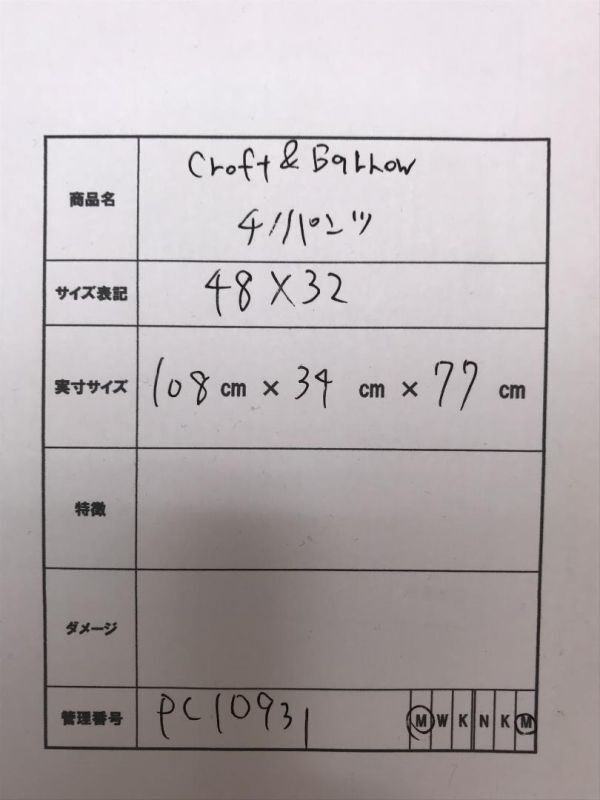 商品名
Croft & Barrow
チノパンツ
サイズ表記
48X32
実寸サイズ
108 cm × 34 cm × 77 cm
特徴
ダメージ
管理番号
PC10931
M W K N K M